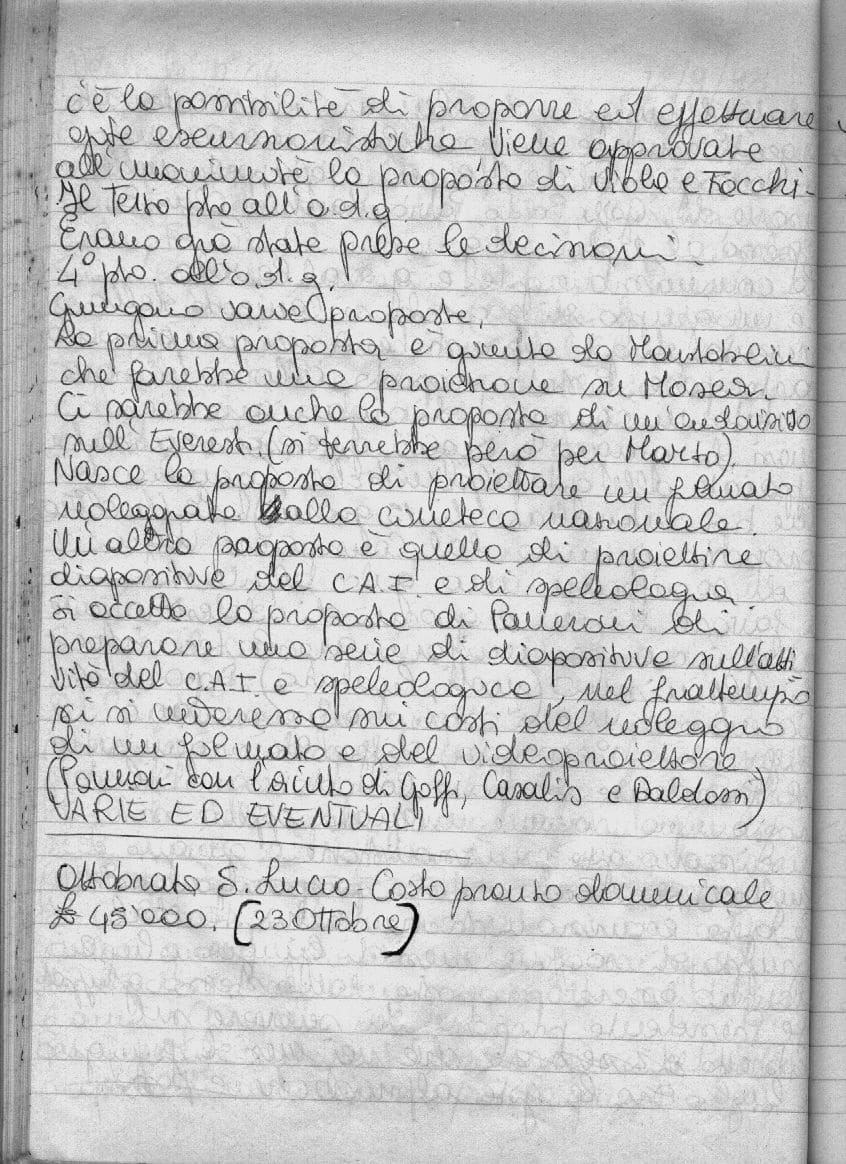 c'è la possibilità di proporre ed effettuare
gite escursionistiche viene approvate
all'unanimità la proposta di Viola e Facchi.
Il Terzo pto all'o.d.g
Erano già state prese le decisioni.
4° pto. all'o.d.g.
Giungono varie proposte.
La prima proposta è giunta da
che farebbe una proiezione su Moser.
Ci sarebbe anche la proposta di un'audiovisivo
sull'Everest, (si terrebbe però per Marzo).
Nasce la proposta di proiettare un filmato
noleggiato dalla cineteca nazionale.
Un altra proposta è quella di proiettare
diapositive del C.A.I. e di speleologia.
Si accetta la proposta di Panzeroni di
preparare una serie di diapositive sull'atti
vità del C.A.I. e speleologica, nel frattempo
si si interesse sui costi del noleggio
di un filmato e del videoproiettore
(con l'aiuto di Goffi, Casalis e Baldassi)
VARIE ED EVENTUALI
Ottobrata S. Lucio - Costo pranzo domenicale
£ 45'000. (23 Ottobre)